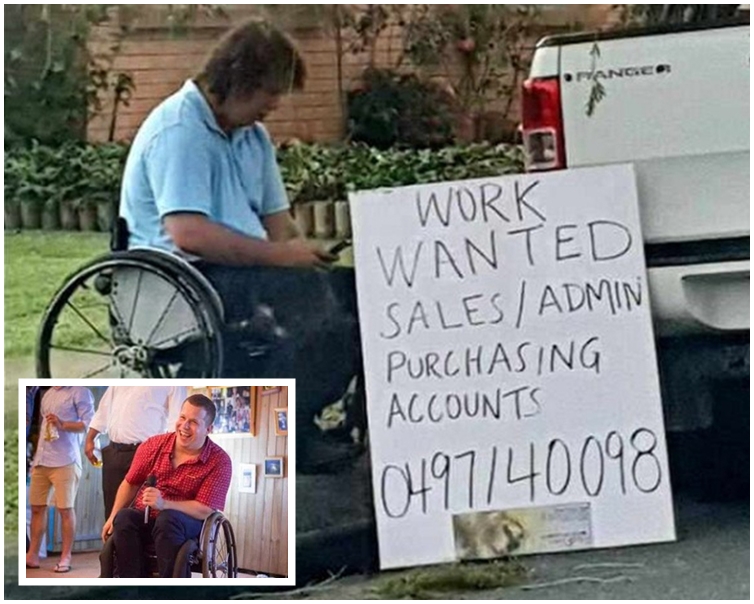 RANGER
WORK
WANTED
SALES/ADMIN
PURCHASING
ACCOUNTS
0497140098